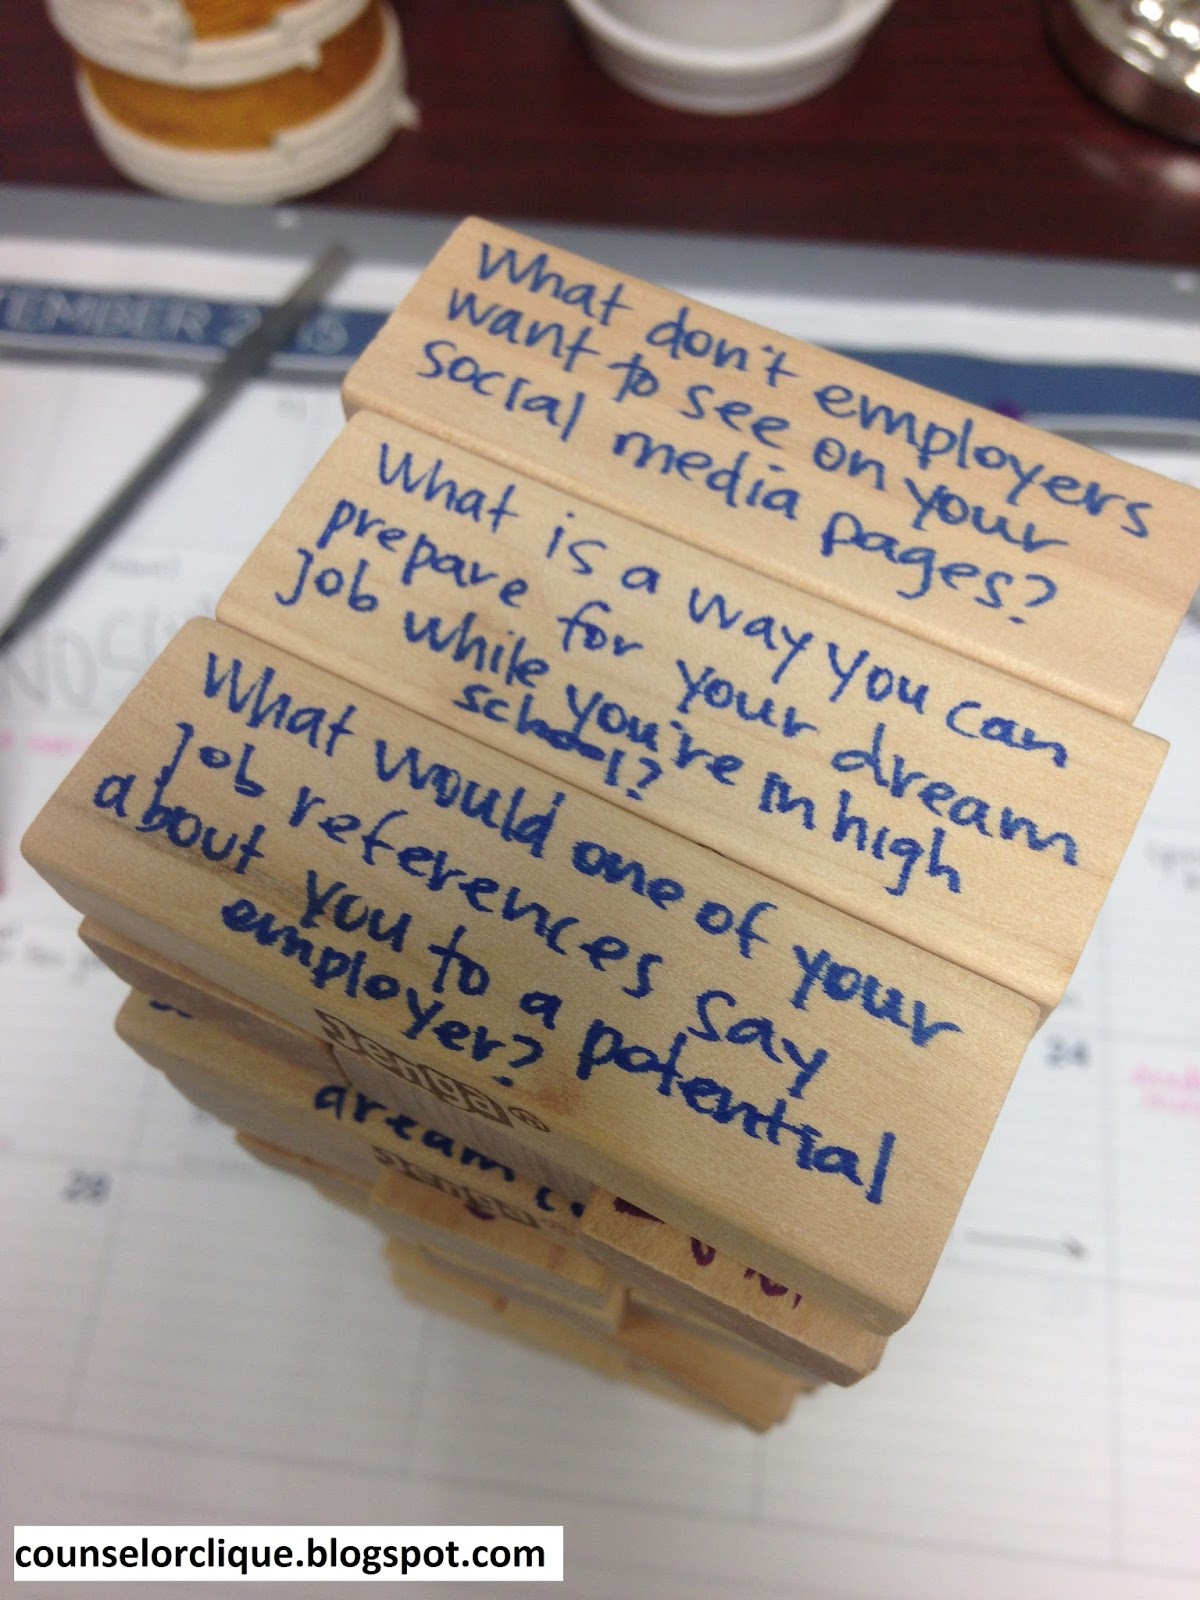 What don't employers
want to see on your
social media pages?
What is a way you can
prepare for your dream
job while you're in high
school?
What would one of your
job references say
about you to a potential
employer?
Jenga®
dream
Jenga
28
24
counselorclique.blogspot.com